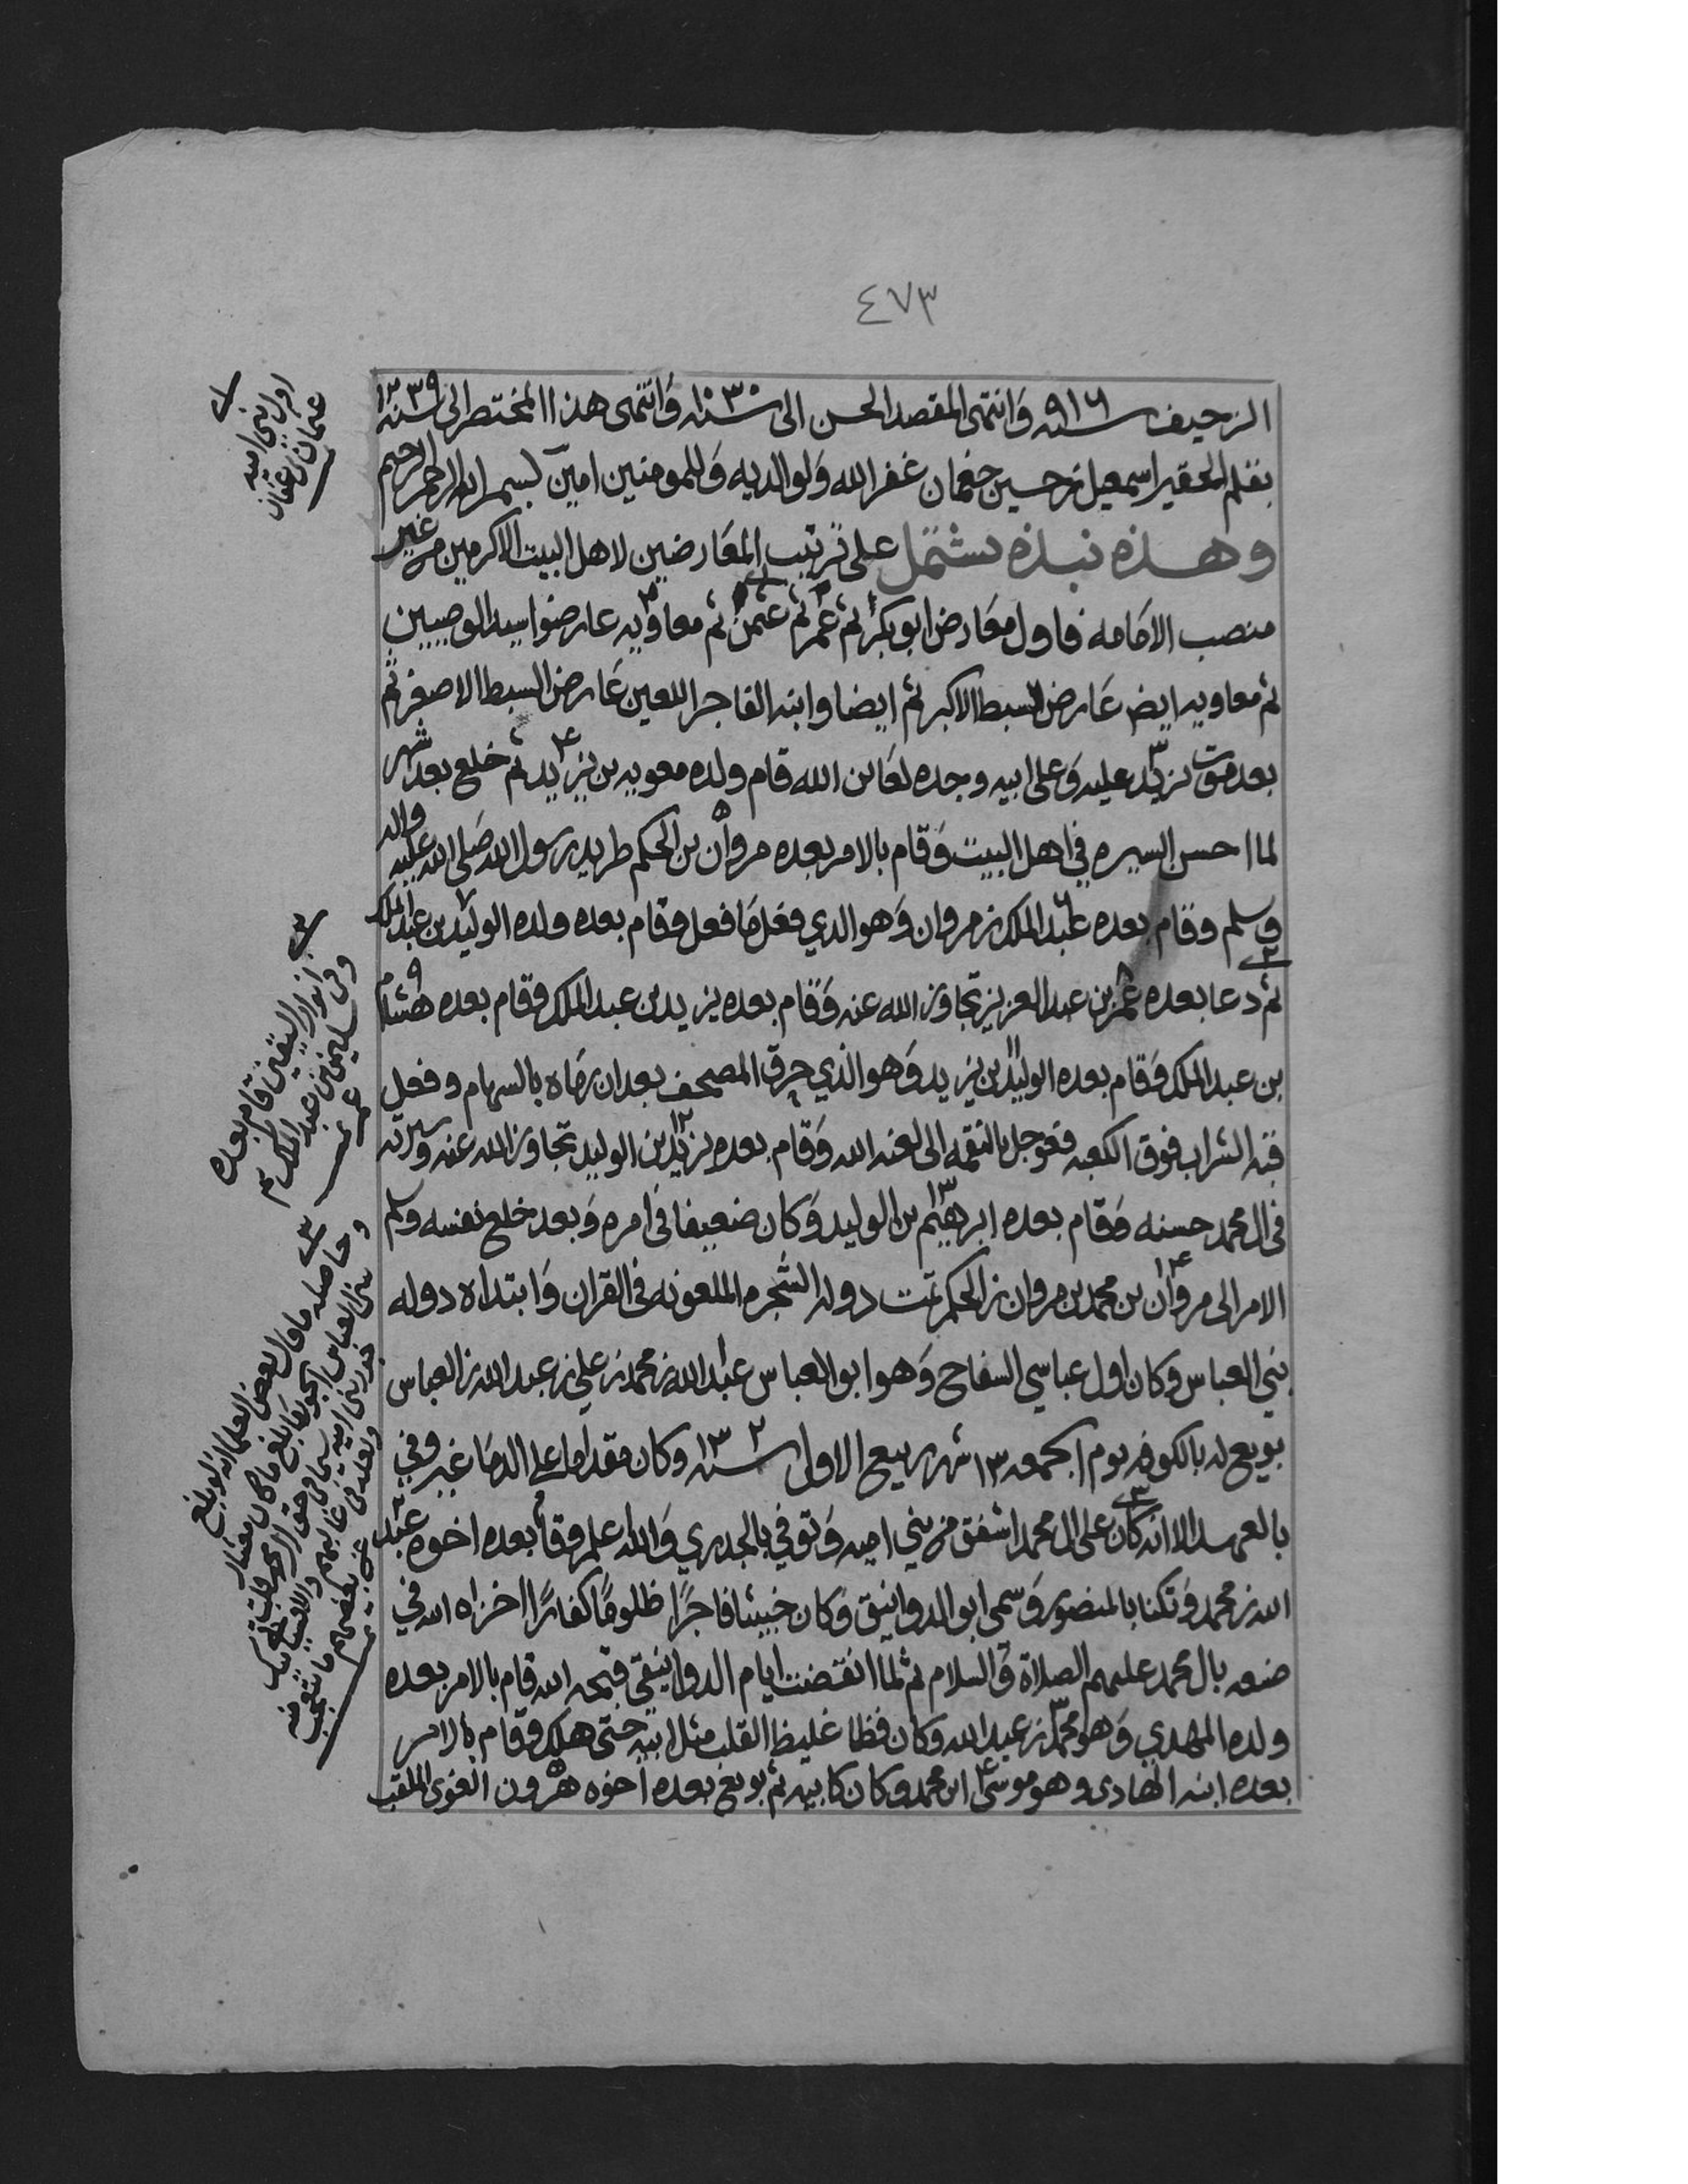 ٤٧٣
الزحيف سنه ٩١٦ وانتهى المقصد الحسن الى سنه ١٠٣٠ وانتهى هذا المختصر الى سنه ١٣٣٩
بقلم الحقير اسمعيل بن حسين جغمان غفر الله وَلوالديه وَللمومنين امين بسم الله الرحمن الرحيم
وهذه نبذه تشتمل على ترتيب المعَارضين لاهل البيت الاكرمين من غير
منصب الامَامه فاول معَارض ابو بكر ثم عمر ثم عثمن ثم معاويه عارضوا سيد الوصيين
ثم معاويه ايض عَارض السبط الاكبر ثم ايضا وابنه الفاجر اللعين عَارض السبط الاصغر ثم
بعد موت يزيد عليه وَعلى ابيه وجده لعَائن الله قام ولده معويه بن يزيد ثم خلع بعد شهر
لما احسن السيره في اهل البيت وَقام بالامر بعده مروان بن الحكم طريد رسول الله صَلى الله عليه واله
وسلم وقام بعده عبد الملك بن مروان وَهو الذي فعل مَا فعل وقام بعده ولده الوليد بن عبد الملك
ثم دعا بعده عمر بن عبد العزيز تجاوز الله عنه وَقام بعده يزيد بن عبد الملك وقام بعده هشام
بن عبد الملك وَقام بعده الوليد بن يزيد وَهو الذي حرق المصحف بعد ان رمَاه بالسهام وفعل
قبه الشراب فوق الكعبه فعوجل بالنقمه الى لعنه الله وَقام بعده يزيد بن الوليد تجاوز الله عنه وسيرته
في ال محمد حسنه وَقام بعده ابرهيم بن الوليد وَكان ضعيفا في امره وَبعد خلع نفسه وسلم
الامر الى مروان بن محمد بن مروان بن الحكم تمت دوله الشجره الملعونه في القران وَابتداه دوله
بني العباس وكان اول عباسي السفاح وَهو ابو العباس عبد الله بن محمد بن علي بن عبد الله بن العباس
بويع له بالكوفه يوم الجمعه ١٣ شهر ربيع الاول سنه ١٣٢ وكان مقداما على الدمَا غير وفي
بالعهد الا انه كان على ال محمد اشفق من بني اميه وَتوفي بالجدري وَالله اعلم وقام بعده اخوه عبد
الله بن محمد وَتكنا بالمنصور وَسمى ابو الدوانيق وَكان خبيثا فاجرًا ظلومًا كفارًا اخزاه الله في
صنعه بال محمد عليهم الصلاة وَالسلام ثم لما انقضت ايام الدوانيقي قبحه الله قام بالامر بعده
ولده المهدي وَهو محمد بن عبد الله وكان فظا غليظ القلب مثل ابيه حتى هلك وقام بالامر
بعده ابنه الهادي وهو موسى ابن محمد وكان كابيه ثم بويع بعده اخوه هرون الغوي الملقب
اول بني اميه
عثمان بن عفان
وفي انوار اليقين قام بعده
سليمن بن عبد الملك ثم
عمر
وحاصله ما قال بعض العلما انه لو بلغ
بني العباس